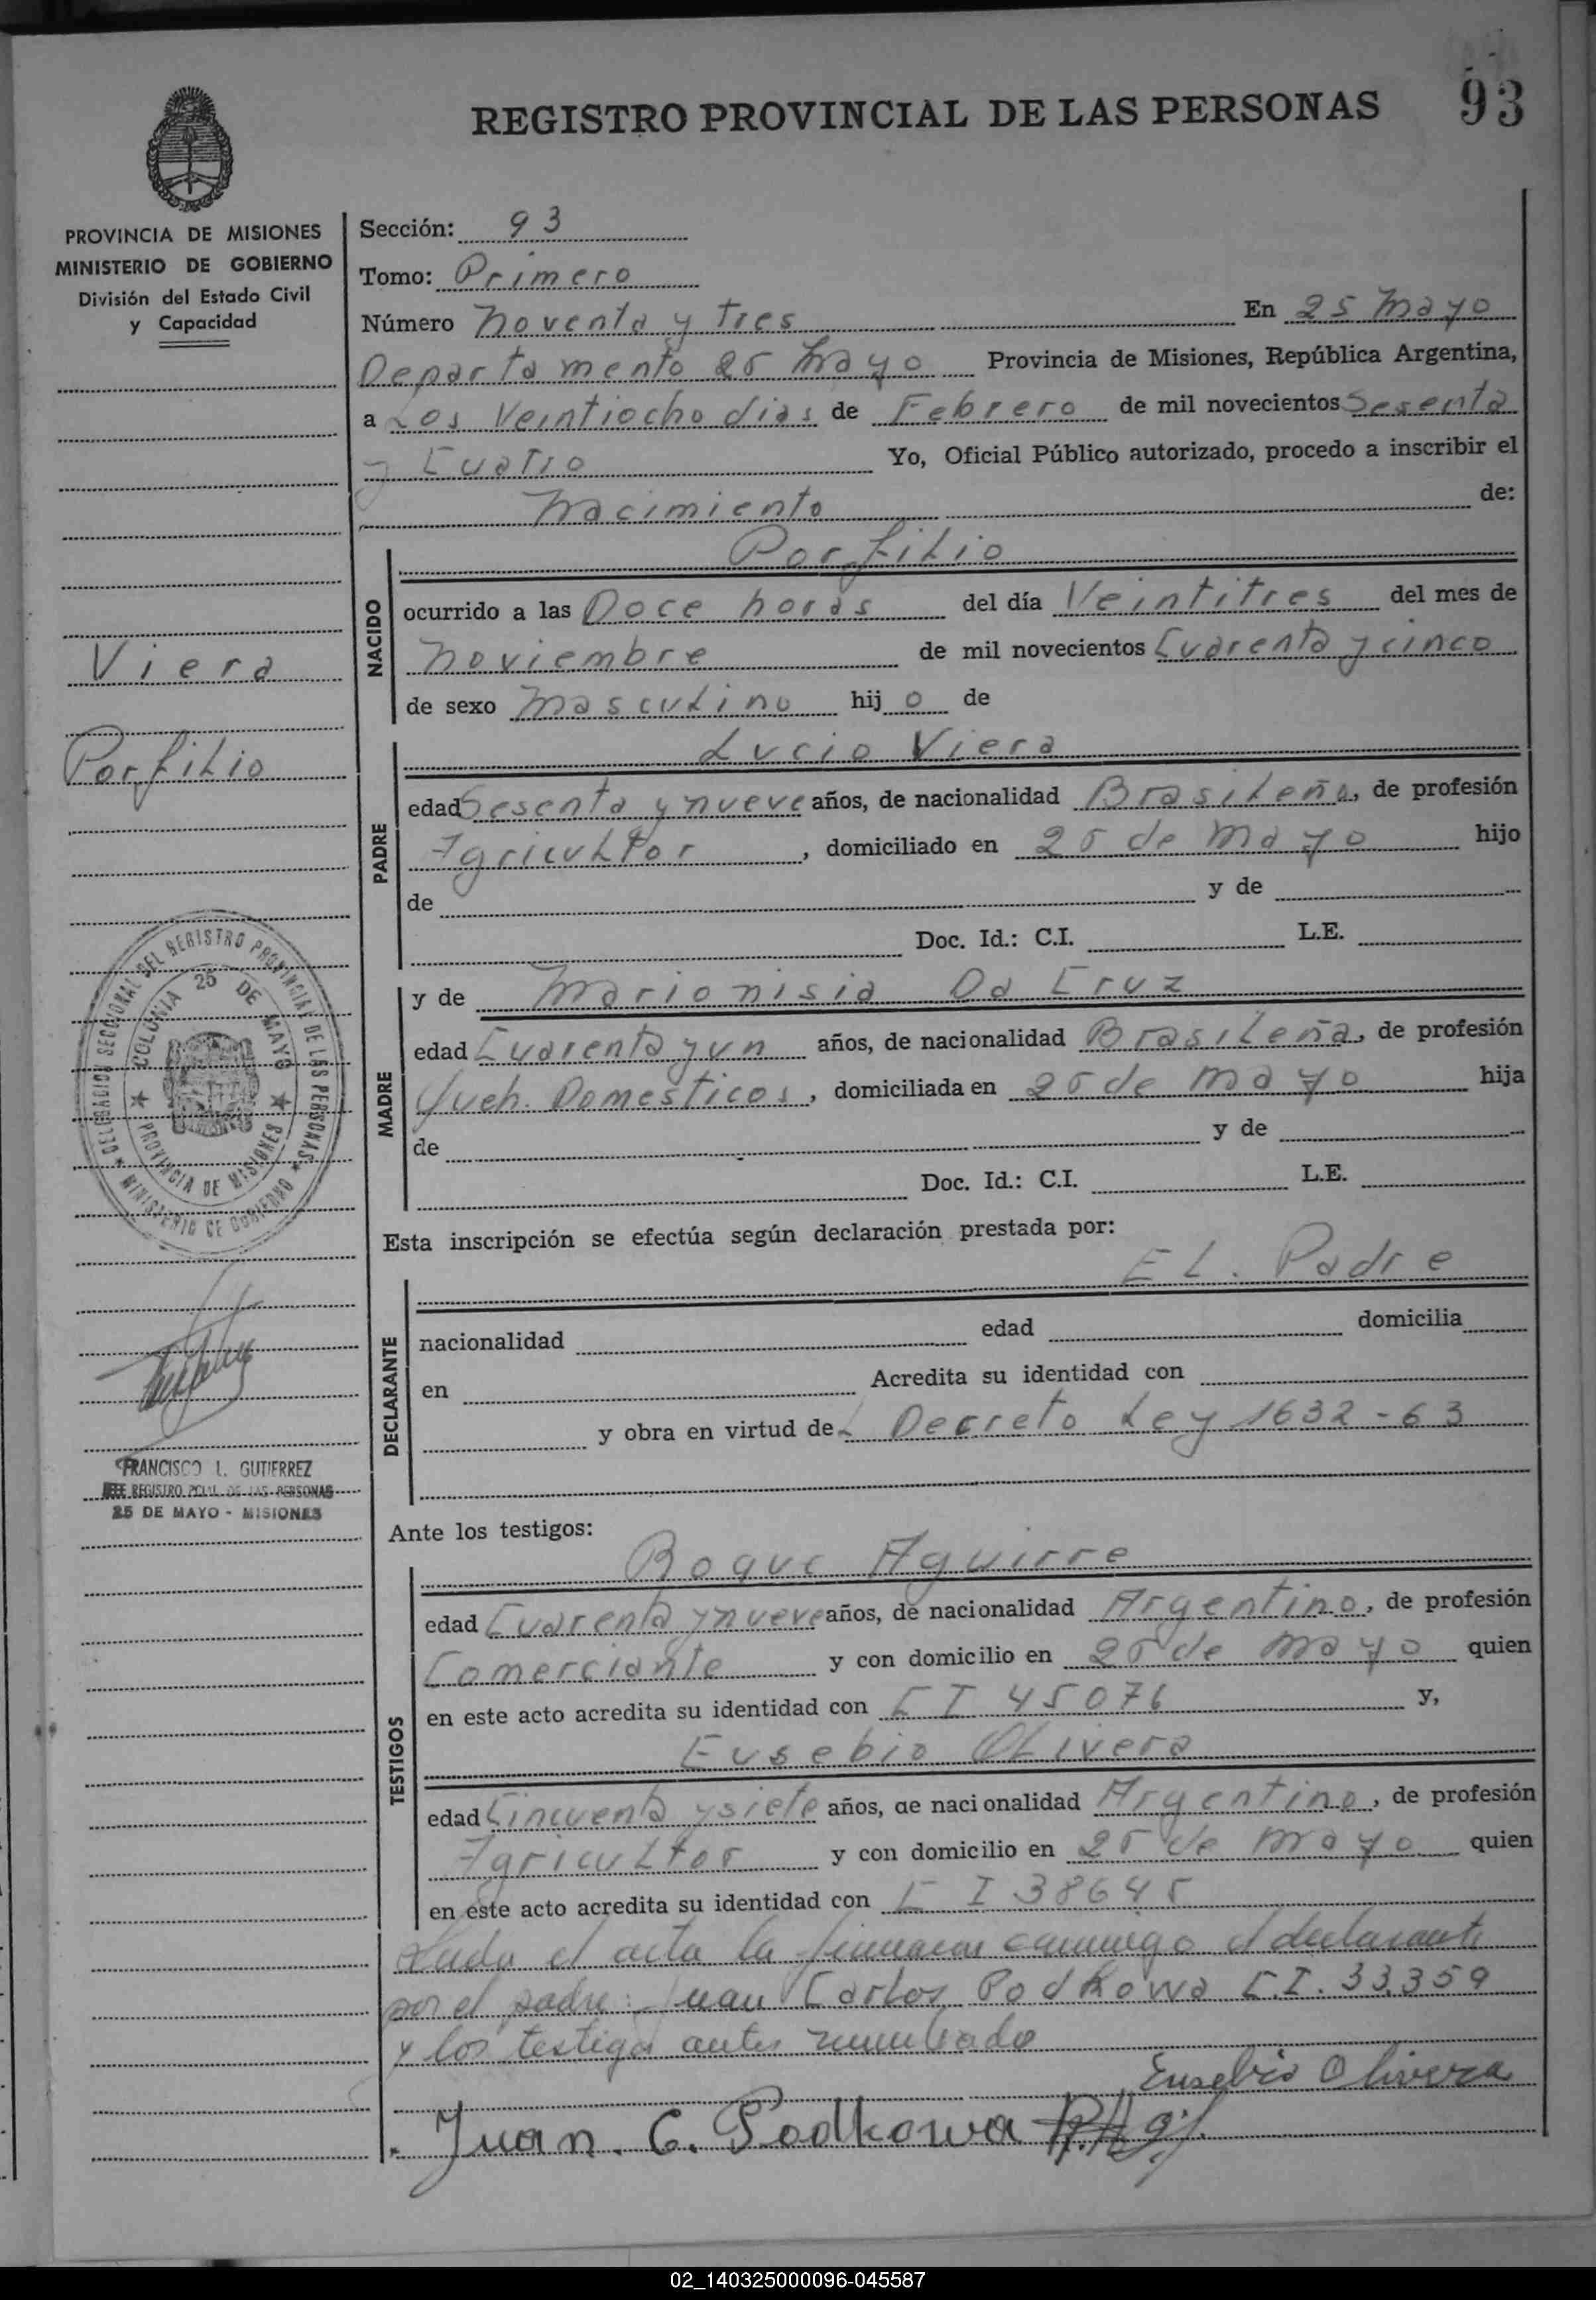 REGISTRO PROVINCIAL DE LAS PERSONAS 93
PROVINCIA DE MISIONES
MINISTERIO DE GOBIERNO
División del Estado Civil
y Capacidad
Viera
Porfilio
DELEGACION SECCIONAL DEL REGISTRO PROVINCIAL DE LAS PERSONAS
★ MINISTERIO DE GOBIERNO ★
COLONIA 25 DE MAYO
★ PROVINCIA DE MISIONES ★
FRANCISCO L. GUTIERREZ
JEFE REGISTRO PCIAL. DE LAS PERSONAS
25 DE MAYO - MISIONES
Sección: 93
Tomo: Primero
Número Noventa y Tres En 25 Mayo
Departamento 25 Mayo Provincia de Misiones, República Argentina,
a Los Veintiocho dias de Febrero de mil novecientos Sesenta
y Cuatro Yo, Oficial Público autorizado, procedo a inscribir el
Nacimiento de:
NACIDO
Porfilio
ocurrido a las Doce horas del día Veintitres del mes de
Noviembre de mil novecientos Cuarenta y cinco
de sexo Masculino hij o de
PADRE
Lucio Viera
edad Sesenta y nueve años, de nacionalidad Brasileña, de profesión
Agricultor, domiciliado en 25 de Mayo hijo
de y de
Doc. Id.: C.I. L.E.
MADRE
y de Marionisia Da Cruz
edad Cuarenta y un años, de nacionalidad Brasileña, de profesión
Queh. Domesticos, domiciliada en 25 de Mayo hija
de y de
Doc. Id.: C.I. L.E.
Esta inscripción se efectúa según declaración prestada por:
DECLARANTE
EL. Padre
nacionalidad edad domicilia
en Acredita su identidad con
y obra en virtud de L Decreto Ley 1632-63
Ante los testigos:
TESTIGOS
Roque Aguirre
edad Cuarenta y nueve años, de nacionalidad Argentino, de profesión
Comerciante y con domicilio en 25 de Mayo quien
en este acto acredita su identidad con C I 45076 y,
Eusebio Olivera
edad Cincuenta y siete años, de nacionalidad Argentino, de profesión
Agricultor y con domicilio en 25 de Mayo quien
en este acto acredita su identidad con C I 38645
Leida el acta la firmaron conmigo el declarante
por el padre: Juan Carlos Podkowa C.I. 33.359
y los testigos antes
Eusebio Olivera
Juan. C. Podkowa
02_140325000096-045587